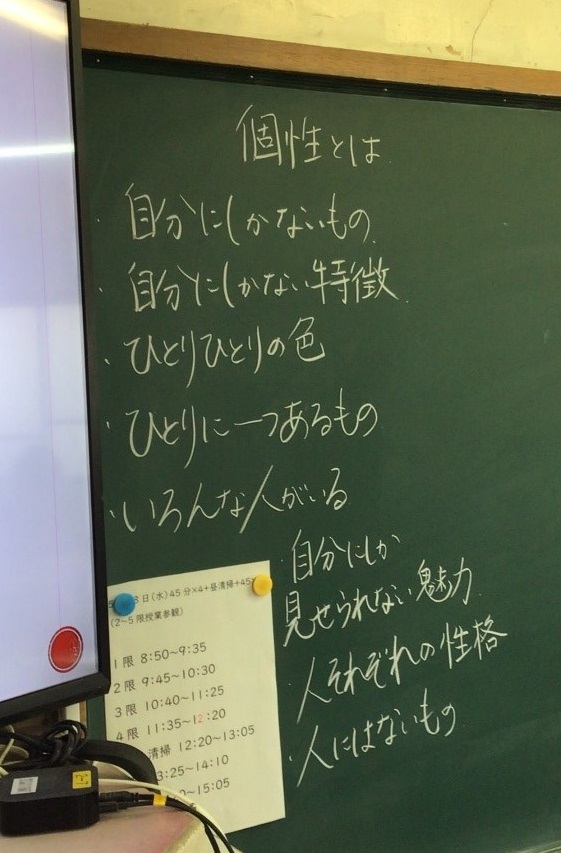 個性とは
・自分にしかないもの
・自分にしかない特徴
・ひとりひとりの色
・ひとりに一つあるもの
・いろんな人がいる
・自分にしか
見せられない魅力
・人それぞれの性格
・人にはないもの
3日(水)45分×4+昼清掃+45
(2~5限授業参観)
1限 8:50~9:35
2限 9:45~10:30
3限 10:40~11:25
4限 11:35~12:20
清掃 12:20~13:05
3:25~14:10
~15:05